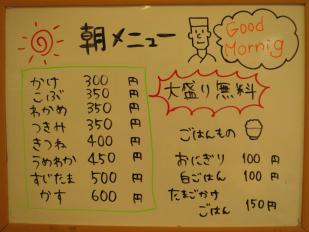 朝メニュー
Good
Mornig
かけ 300 円
こぶ 350 円
わかめ 350 円
つきみ 350 円
きつね 400 円
うめわか 450 円
すじたま 500 円
かす 600 円
大盛り無料
ごはんもの
おにぎり 100 円
白ごはん 100 円
たまごかけ
ごはん 150円